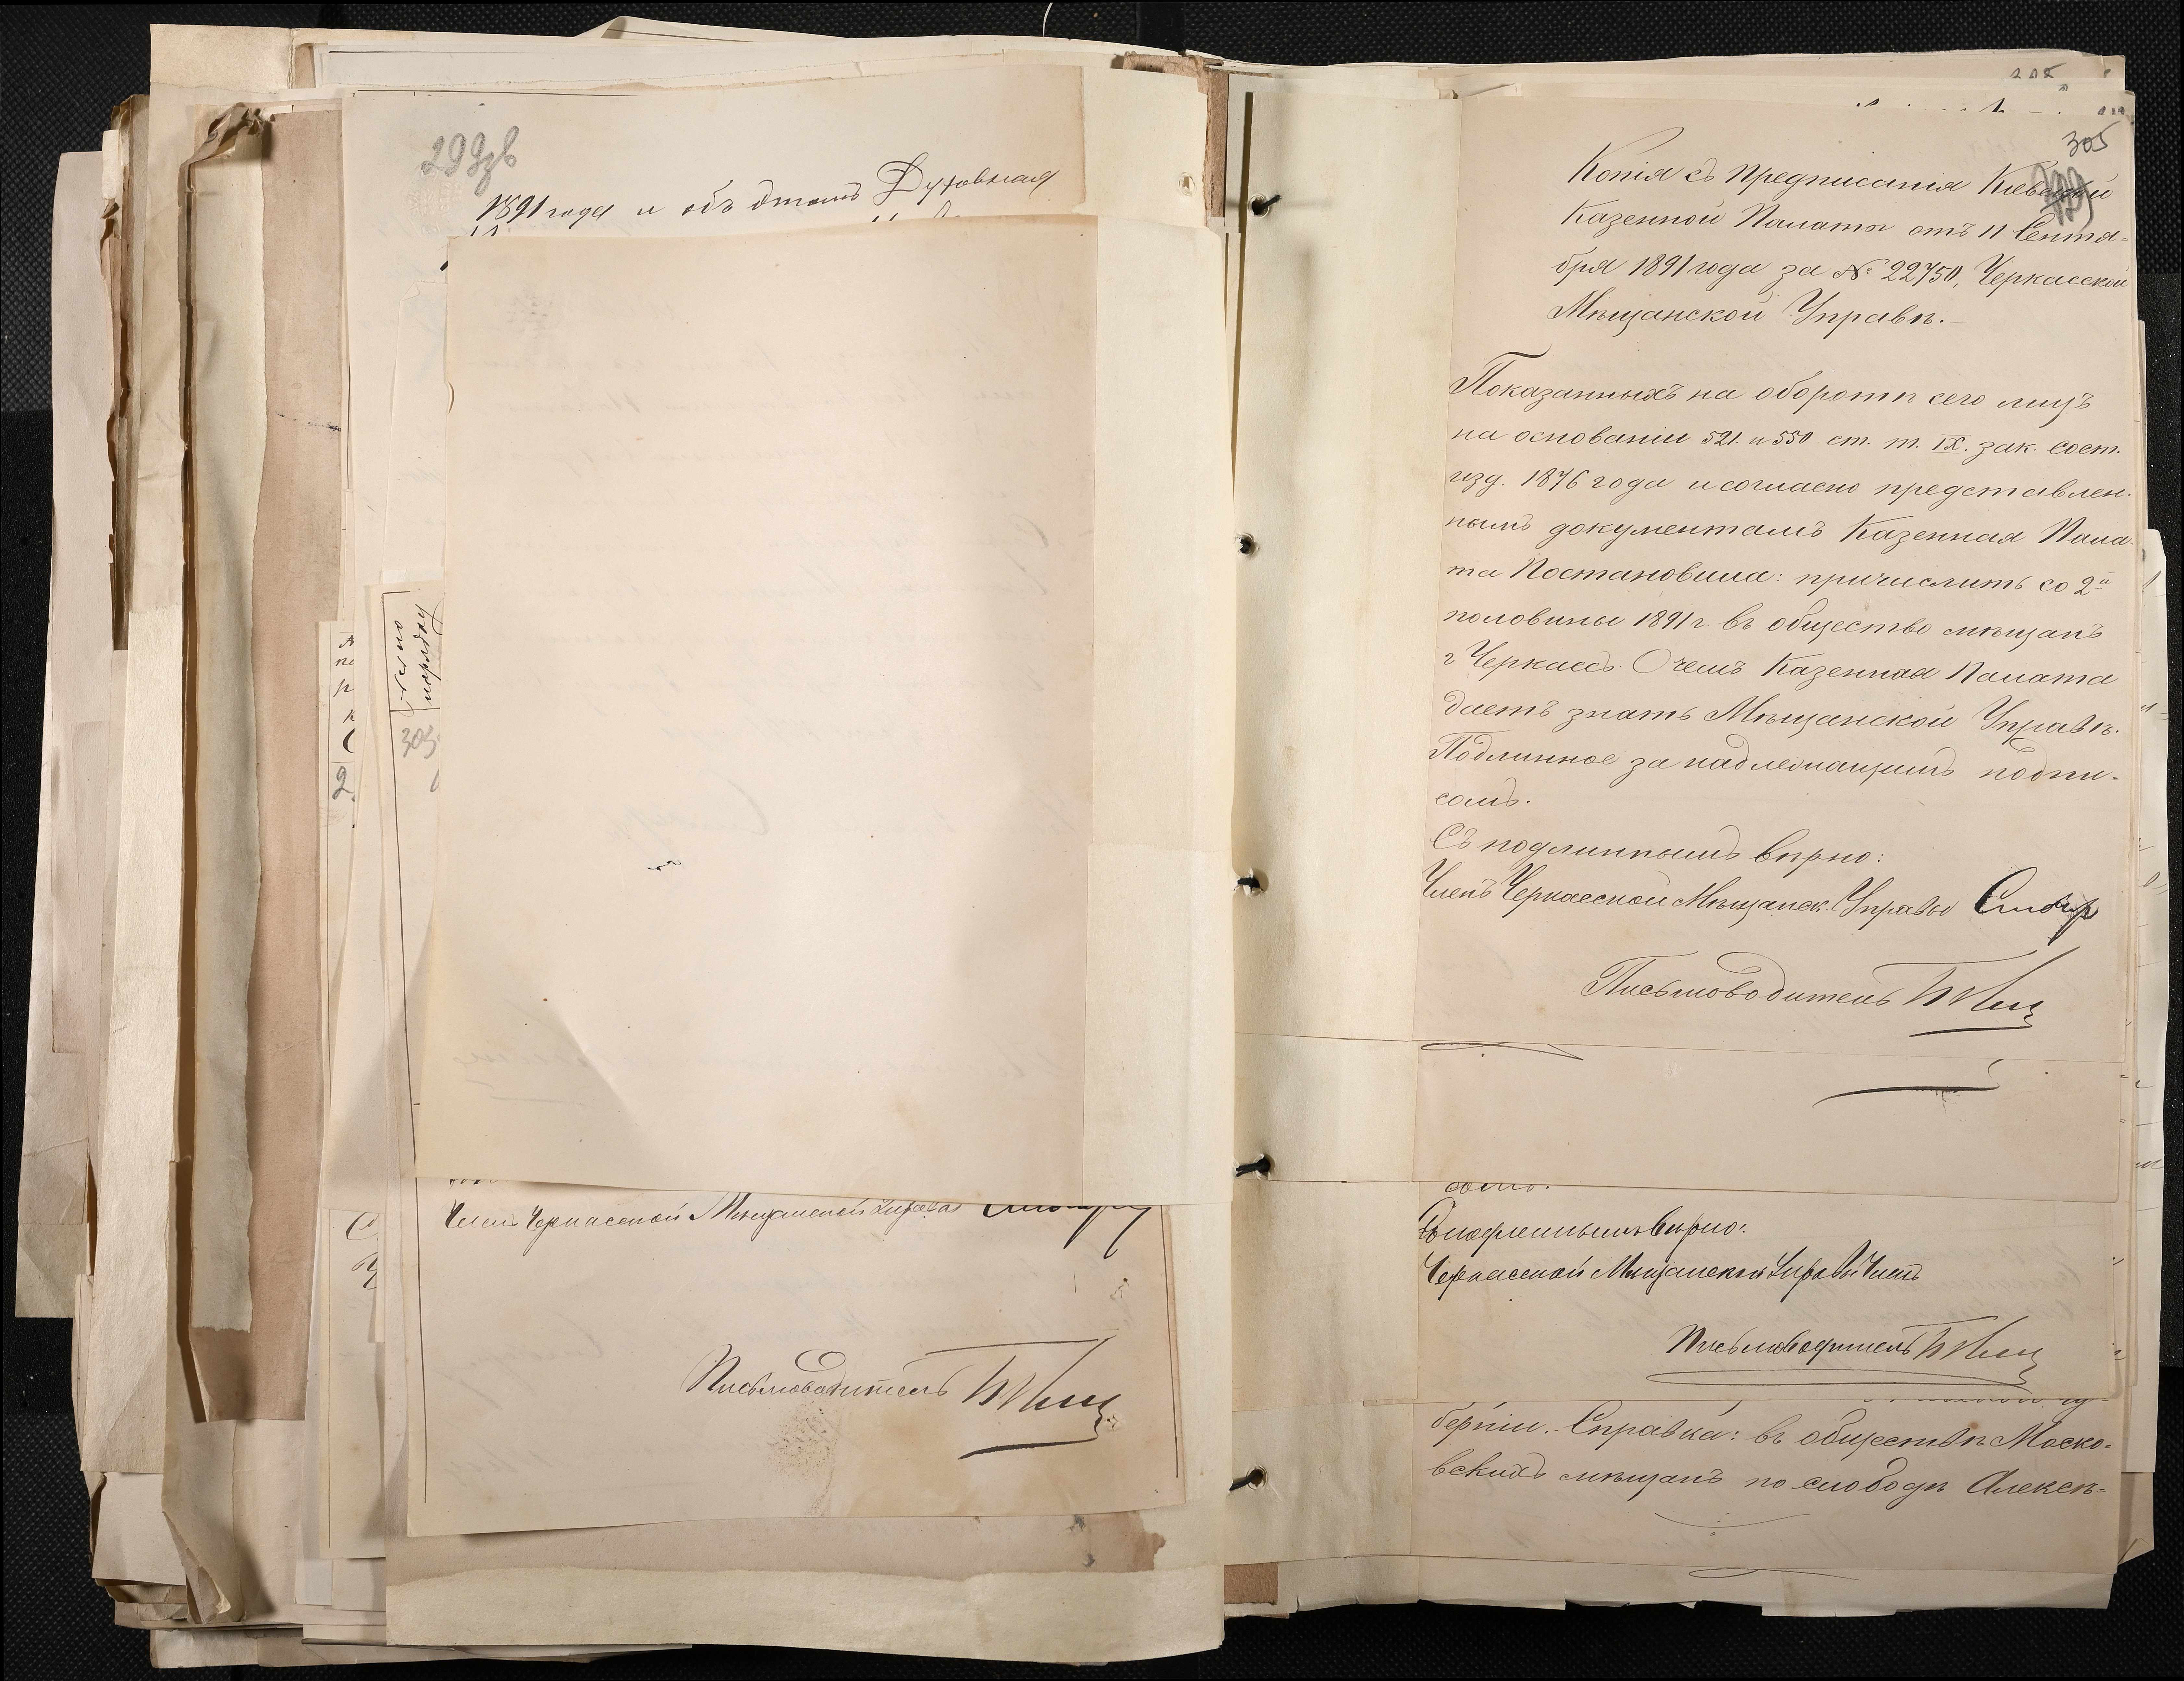 1891 года и объ этомъ Духовная
Членъ Черкасской Мѣщанской Управы
Письмоводитель
305
Копія съ предписанія Кіевской
Казенной Палаты отъ 11 Сентя-
бря 1891 года за № 22750, Черкасской
Мѣщанской Управѣ.-
Показанныхъ на оборотѣ сего лицъ
на основаніи 521. и 550 ст. т. IX. зак. сост.
изд. 1876 года и согласно представлен-
нымъ документамъ Казенная Пала-
та Постановила: причислить со 2й
половины 1891 г. въ общество мѣщанъ
г Черкассъ. О чемъ Казенная Палата
даетъ знать Мѣщанской Управѣ.
Подлинное за надлежащимъ подпи-
сомъ.
Съ подлиннымъ вѣрно:
Членъ Черкасской Мѣщанск. Управы
Письмоводитель
сомъ.
Съ подлиннымъ вѣрно:
Черкасской Мѣщанской Управы Членъ
Письмоводитель
берніи. Справка: въ обществѣ Моско-
вскихъ мѣщанъ по слободѣ Алексѣ-